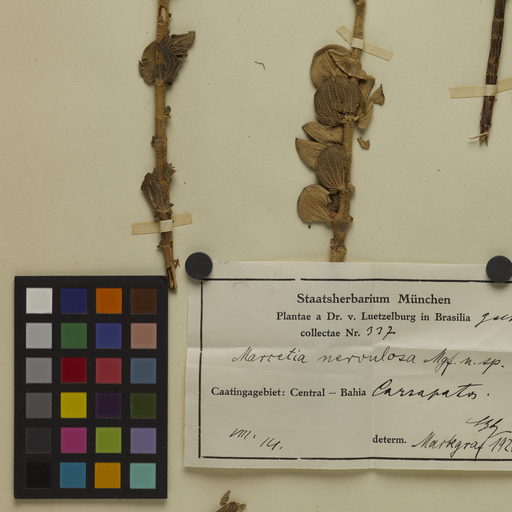 Staatsherbarium München
Plantae a Dr. v. Luetzelburg in Brasilia
collectae Nr. 337
Marcetia nervulosa Mgf. n. sp.
Caatingagebiet: Central – Bahia Carrapato.
VIII. 14.
determ. Markgraf